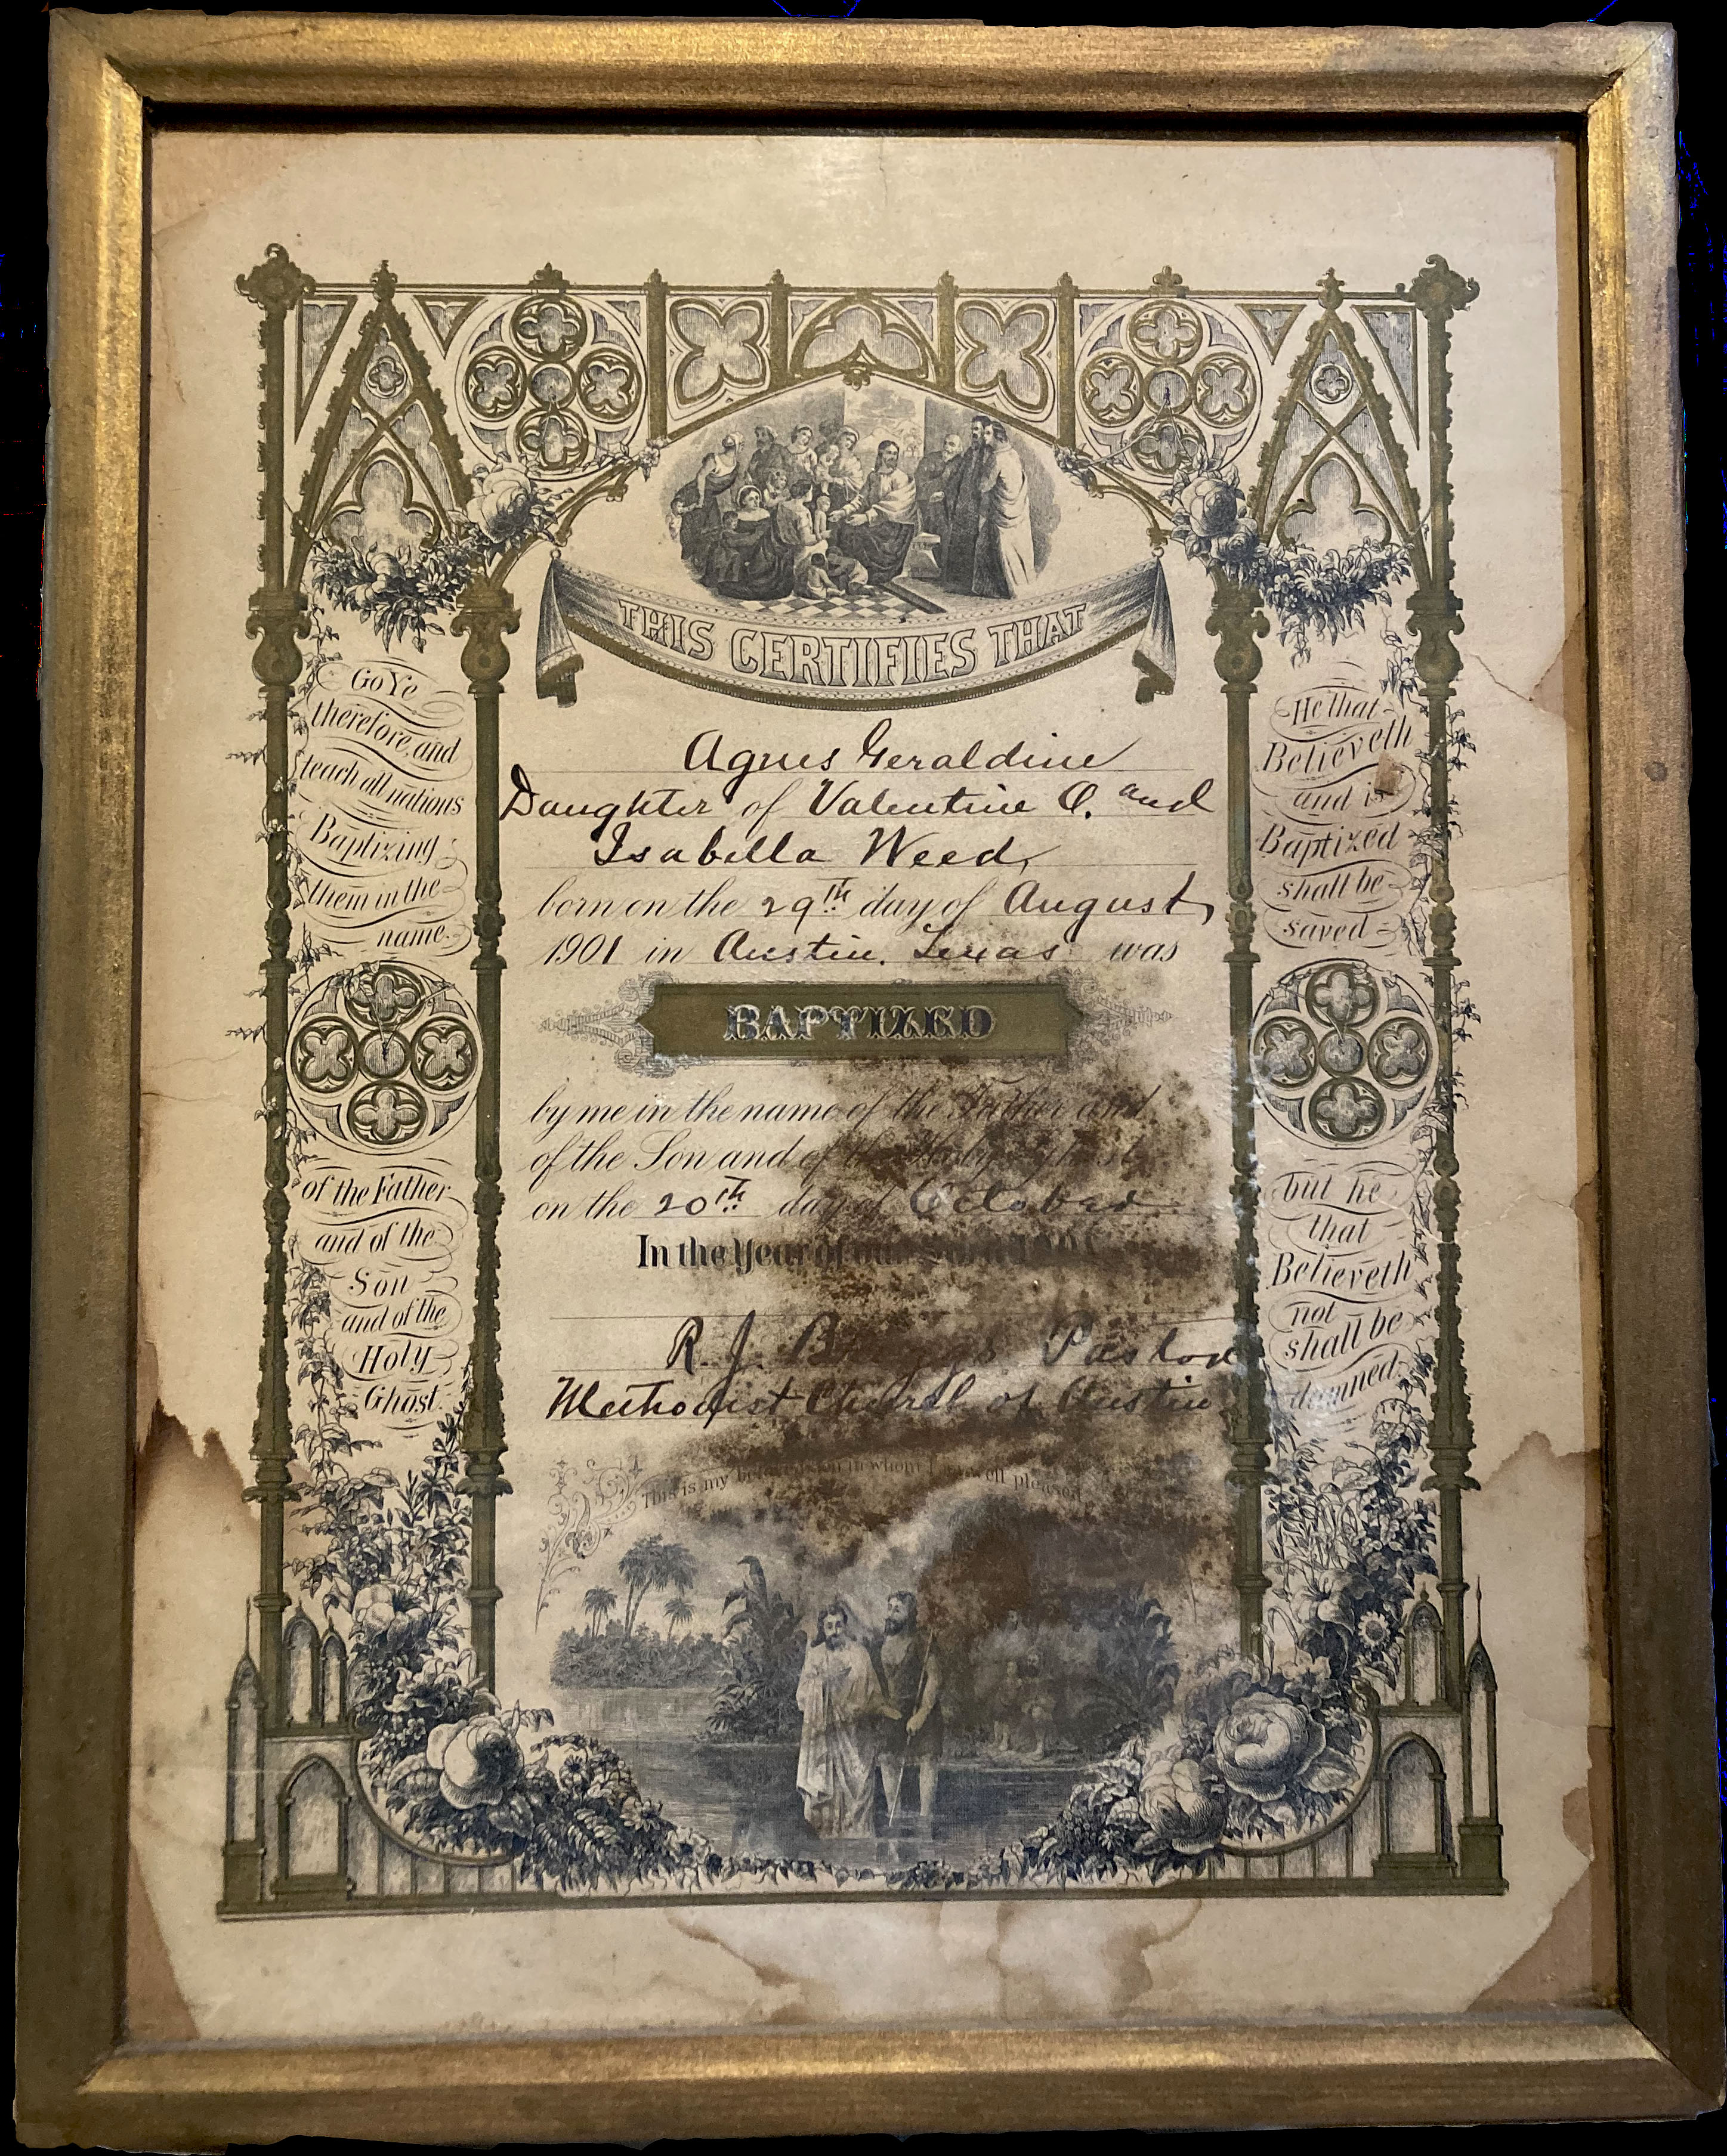 THIS CERTIFIES THAT
Agnes Geraldine
Daughter of Valentine O. and
Isabella Weed,
born on the 29th day of August,
1901 in Austin. Texas was
BAPTIZED
by me in the name of the Father and
of the Son and of the Holy Ghost
on the 20th day of October
In the Year of our
R. J. Pastor
Methodist Church of Austin
This is my beloved Son in whom I am well pleased
Go Ye
therefore, and
teach all nations
Baptizing
them in the
name
of the Father
and of the
Son
and of the
Holy
Ghost.
He that
Believeth
and is
Baptized
shall be
saved
but he
that
Believeth
not
shall be
damned.